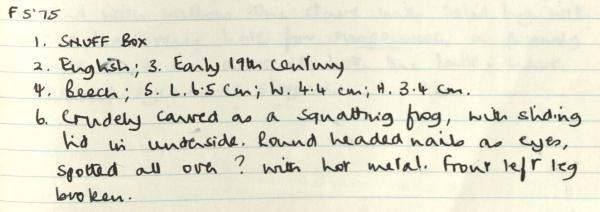 F 5'75
1. SNUFF BOX
2. English; 3. Early 19th century
4. Beech; 5. L. 6.5 cm; W. 4.4 cm; H. 3.4 cm.
6. Crudely carved as a squatting frog, with sliding
lid in underside. Round headed nails as eyes,
spotted all over ? with hot metal. Front left leg
broken.